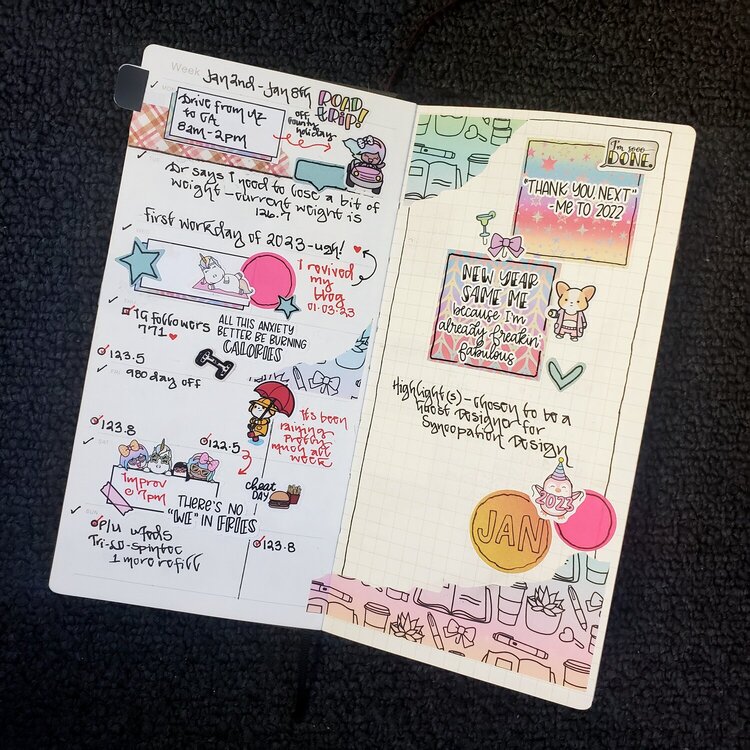 Week Jan 2nd - Jan 8th
ROAD
TRIP!
Drive from AZ
to CA
8am - 2pm
off
county
holiday
Dr says I need to lose a bit of
weight - current weight is
126.7
First workday of 2023 - ugh!
I revived
my
blog
01.03.23
THU
IG followers
771
ALL THIS ANXIETY
BETTER BE BURNING
CALORIES
123.5
FRI
980 day off
123.8
It's been
raining
pretty
much all
week
SAT
122.5
Improv
@ 7pm
cheat
DAY
THERE'S NO
"WE" IN FRIES
SUN
P/U meds
1 more refill
123.8
I'm sooo
DONE.
"THANK YOU, NEXT"
- ME TO 2022
NEW YEAR
SAME ME
because I'm
already freakin'
fabulous
Highlight(s) - chosen to be a
Guest Designer for
Syncopation Design
2023
JAN